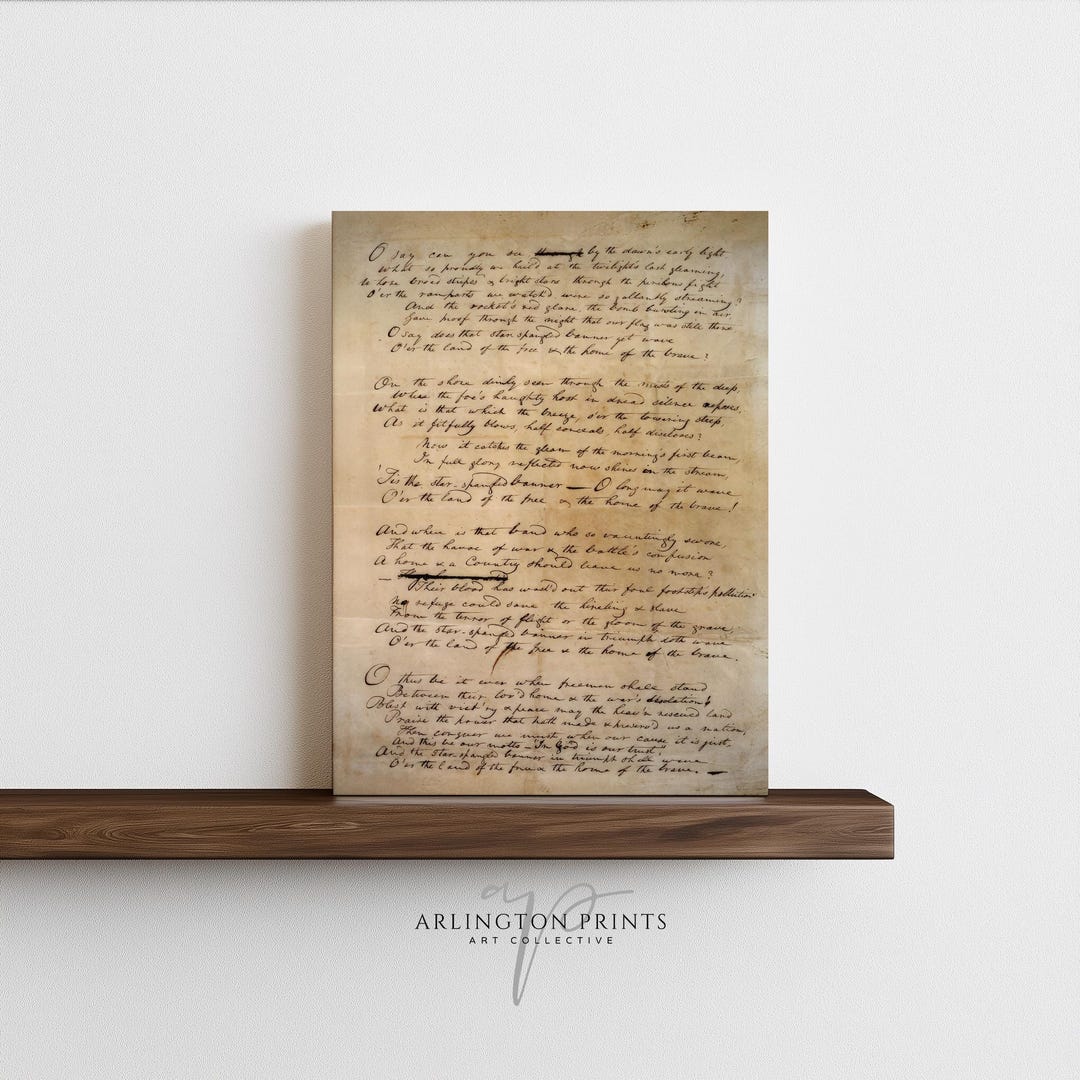 O say can you see through by the dawn's early light
What so proudly we hail'd at the twilight's last gleaming,
Whose broad stripes & bright stars through the perilous fight
O'er the ramparts we watch'd, were so gallantly streaming?
And the rocket's red glare, the bomb bursting in air,
Gave proof through the night that our flag was still there
O say does that star-spangled banner yet wave
O'er the land of the free & the home of the brave?
On the shore dimly seen through the mists of the deep,
Where the foe's haughty host in dread silence reposes,
What is that which the breeze, o'er the towering steep,
As it fitfully blows, half conceals, half discloses?
Now it catches the gleam of the morning's first beam,
In full glory reflected now shines in the stream,
'Tis the star-spangled banner — O long may it wave
O'er the land of the free & the home of the brave!
And where is that band who so vauntingly swore,
That the havoc of war & the battle's confusion
A home & a Country should leave us no more?
— Their blood has wash'd out their foul footstep's pollution
No refuge could save the hireling & slave
From the terror of flight or the gloom of the grave,
And the star-spangled banner in triumph doth wave
O'er the land of the free & the home of the brave.
O thus be it ever when freemen shall stand
Between their lov'd home & the war's desolation!
Blest with vict'ry & peace may the heav'n rescued land
Praise the power that hath made & preserv'd us a nation!
Then conquer we must, when our cause it is just,
And this be our motto — "In God is our trust,"
And the star-spangled banner in triumph shall wave
O'er the land of the free & the home of the brave. —
ap
ARLINGTON PRINTS
ART COLLECTIVE